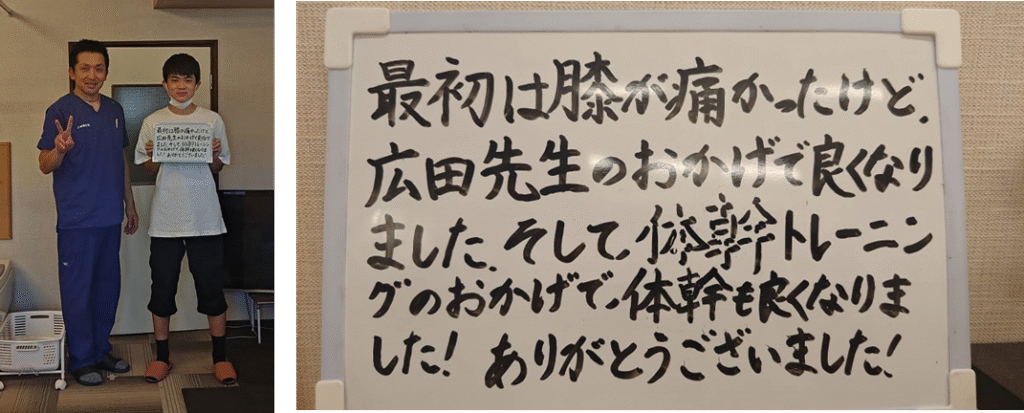 最初は膝が痛かったけど、
広田先生のおかげで良くなり
ました。そして、体幹トレーニン
グのおかげで、体幹も良くなりま
した! ありがとうございました!